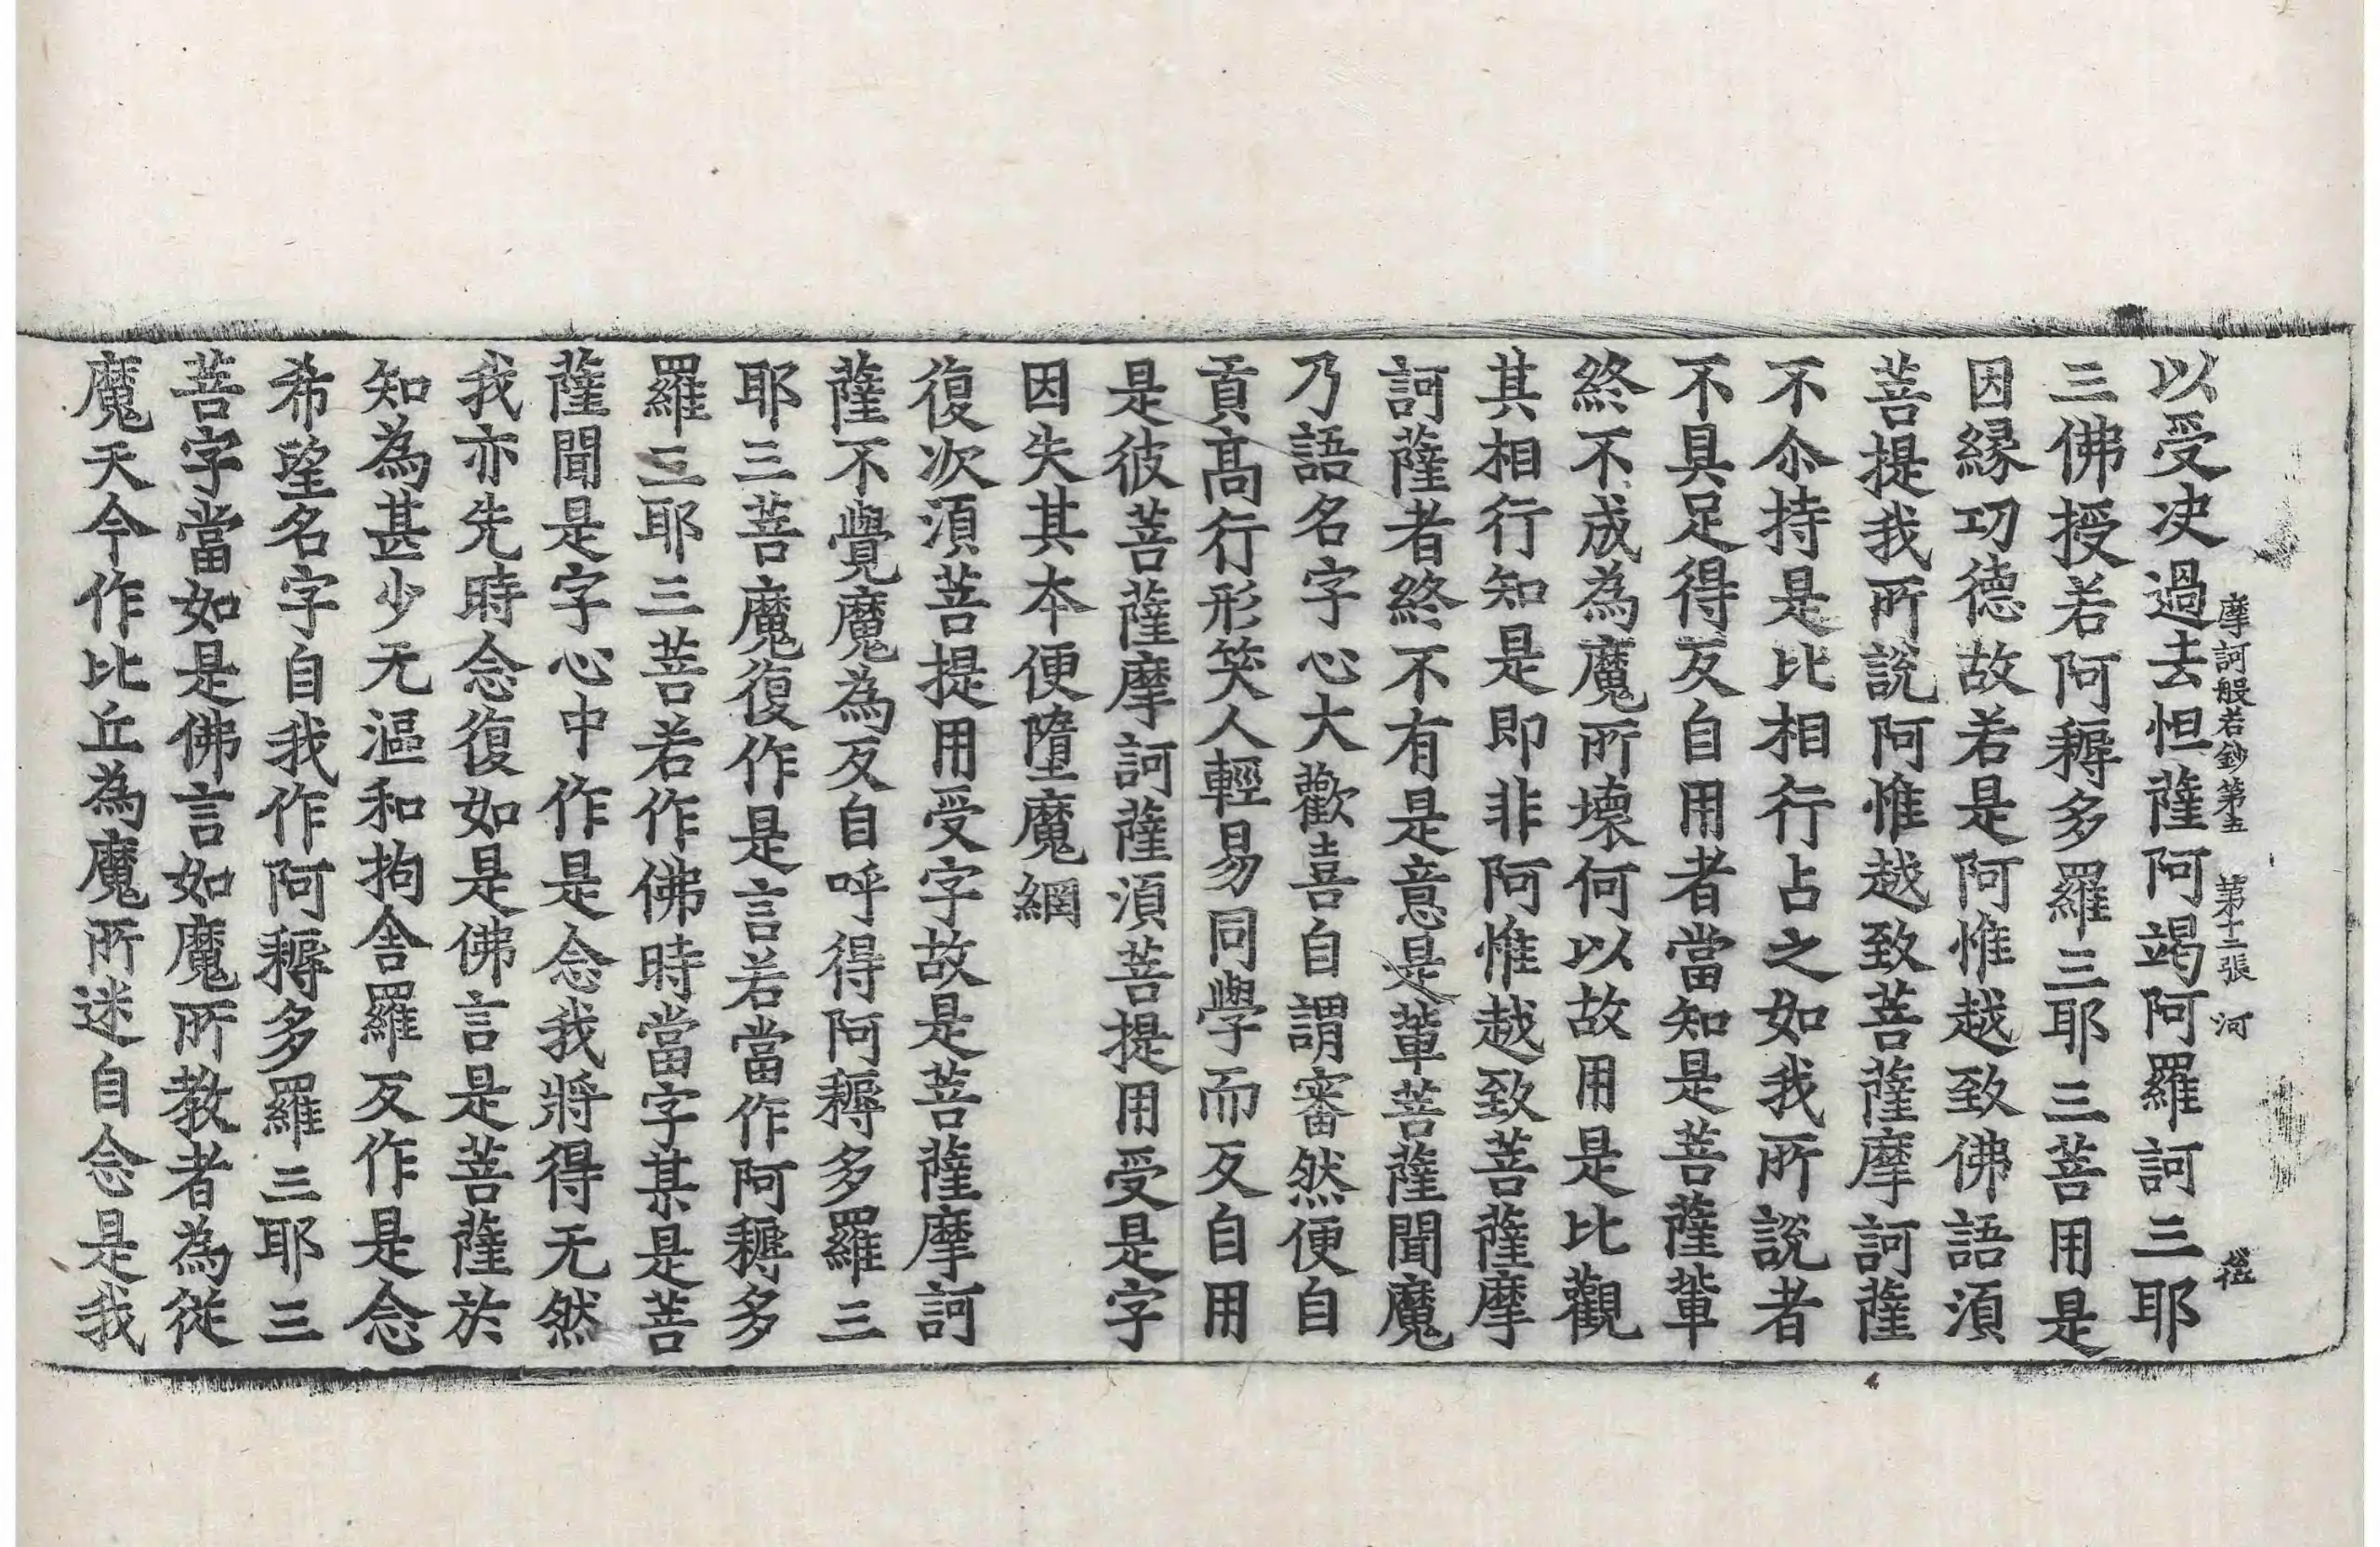 摩訶般若鈔第五　第十二張　河
以受决過去怛薩阿竭阿羅訶三耶
三佛授若阿耨多羅三耶三菩用是
因緣功德故若是阿惟越致佛語湏
菩提我所說阿惟越致菩薩摩訶薩
不尒持是比相行占之如我所說者
不具足得反自用者當知是菩薩輩
終不成為魔所壞何以故用是比觀
其相行知是即非阿惟越致菩薩摩
訶薩者終不有是意是輩菩薩聞魔
乃語名字心大歡喜自謂審然便自
貢高行形笑人輕易同學而反自用
是彼菩薩摩訶薩湏菩提用受是字
因失其本便墮魔網
復次湏菩提用受字故是菩薩摩訶
薩不覺魔為反自呼得阿耨多羅三
耶三菩魔復作是言若當作阿耨多
羅三耶三菩若作佛時當字某是菩
薩聞是字心中作是念我將得无然
我亦先時念復如是佛言是菩薩於
知為甚少无漚和拘舍羅反作是念
希望名字自我作阿耨多羅三耶三
菩字當如是佛言如魔所教者為從
魔天今作比丘為魔所迷自念是我